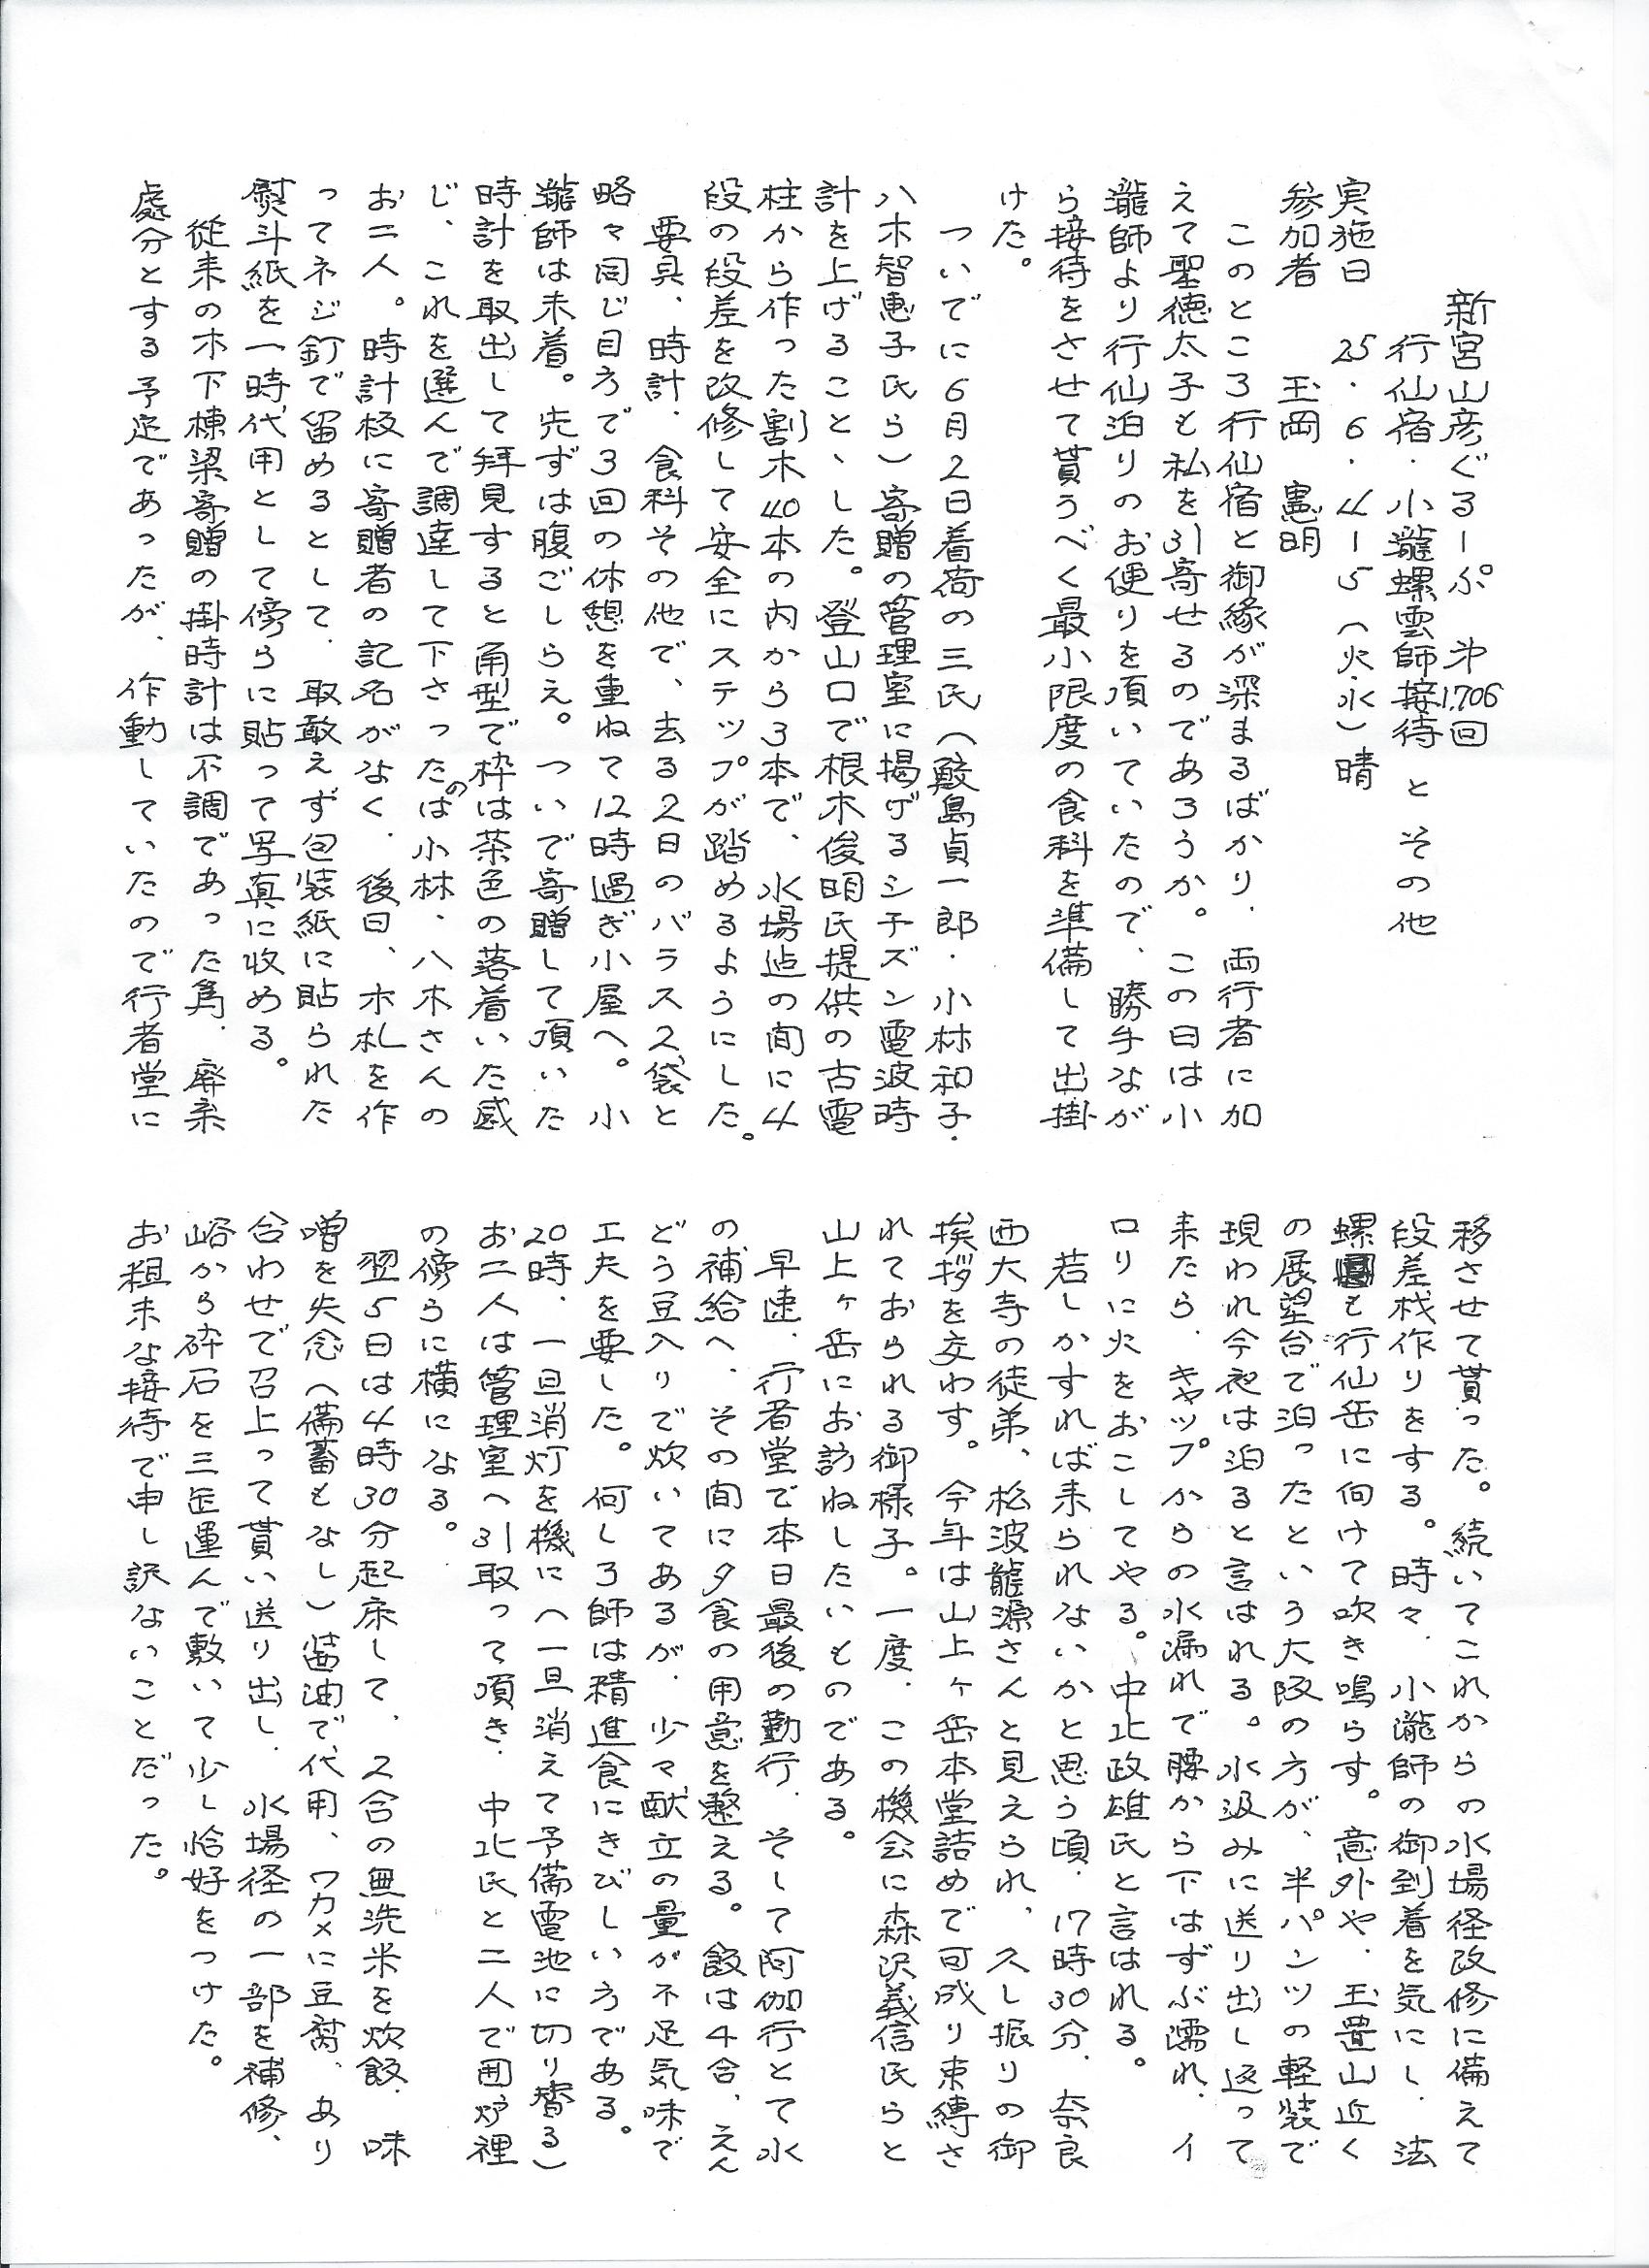 新宮山彦ぐるーぷ 第1706回
行仙宿・小瀧螺雲師接待 と その他
実施日 25.6.4ー5(火.水)晴
参加者 玉岡 憲明
このところ行仙宿と御縁が深まるばかり、両行者に加
えて聖徳太子も私を引寄せるのであろうか。この日は小
瀧師より行仙泊りのお便りを頂いていたので、勝手なが
ら接待をさせて貰うべく最小限度の食料を準備して出掛
けた。
ついでに6月2日着荷の三氏(鮫島貞一郎・小林和子・
八木智恵子氏ら)寄贈の管理室に掲げるシチズン電波時
計を上げること、した。登山口で根木俊明氏提供の古電
柱から作った割木40本の内から3本で、水場迠の間に4
段の段差を改修して安全にステップが踏めるようにした。
要具、時計、食料その他で、去る2日のバラス2袋と
略々同じ目方で3回の休憩を重ねて12時過ぎ小屋へ。小
瀧師は未着。先ずは腹ごしらえ。ついで寄贈して頂いた
時計を取出して拝見すると角型で枠は茶色の落着いた感
じ、これを選んで調達して下さったのは小林、八木さんの
お二人。時計板に寄贈者の記名がなく、後日、木札を作
ってネジ釘で留めるとして、取敢えず包装紙に貼られた
熨斗紙を一時代用として傍らに貼って写真に収める。
従来の木下棟梁寄贈の掛時計は不調であった為、廃棄
處分とする予定であったが、作動していたので行者堂に
移させて貰った。続いてこれからの水場径改修に備えて
段差桟作りをする。時々、小瀧師の御到着を気にし、法
螺も行仙岳に向けて吹き鳴らす。意外や、玉置山近く
の展望台で泊ったという大阪の方が、半パンツの軽装で
現われ今夜は泊ると言はれる。水汲みに送り出し返って
来たら、キャップからの水漏れで腰から下はずぶ濡れ、イ
ロリに火をおこしてやる。中北政雄氏と言はれる。
若しかすれば来られないかと思う頃、17時30分、奈良
西大寺の徒弟、松波龍源さんと見えられ、久し振りの御
挨拶を交わす。今年は山上ヶ岳本堂詰めで可成り束縛さ
れておられる御様子。一度、この機会に森沢義信氏らと
山上ヶ岳にお訪ねしたいものである。
早速、行者堂で本日最後の勤行、そして阿伽行とて水
の補給へ、その間に夕食の用意を整える。飯は4合、えん
どう豆入りで炊いてあるが、少々献立の量が不足気味で
工夫を要した。何しろ師は精進食にきびしい方である。
20時、一旦消灯を機に(一旦消えて予備電池に切り替る)
お二人は管理室へ引取って頂き、中北氏と二人で囲炉裡
の傍らに横になる。
翌5日は4時30分起床して、2合の無洗米を炊飯、味
噌を失念(備蓄もなし)醤油で代用、ワカメに豆腐、あり
合わせで召上って貰い送り出し、水場径の一部を補修、
峪から砕石を三缶運んで敷いて少し恰好をつけた。
お粗末な接待で申し訳ないことだった。